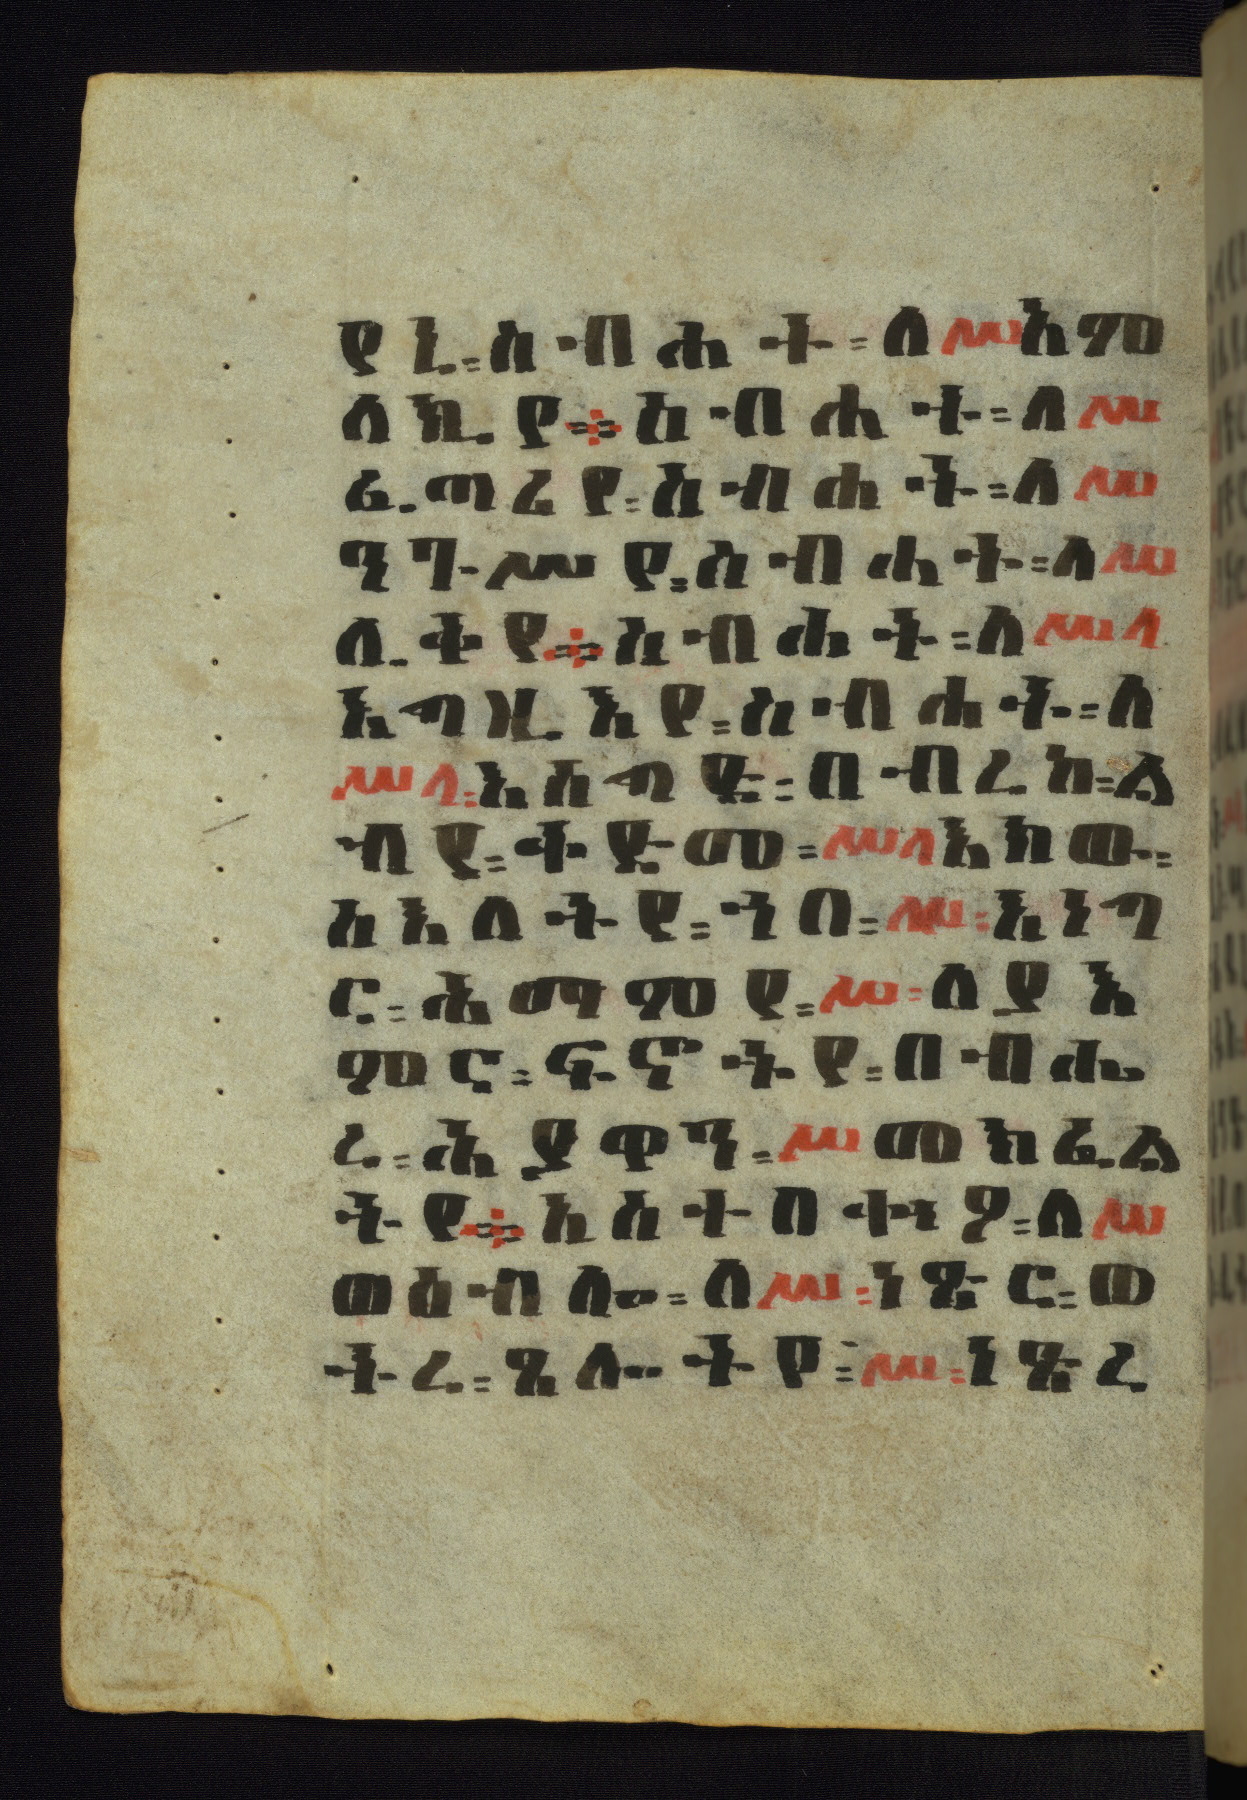 ይኒ፡ ስብሐት፡ ለሥአም
ላኪየ። ስብሐት፡ ለሥ
ፈጣሪየ፡ ስብሐት፡ ለሥ
ንጉሥየ፡ ስብሐት፡ ለሥ
ሊቅየ። ስብሐት፡ ለሥላ
እግዚእየ፡ ስብሐት፡ ለ
ሥላ፡ እሰግድ፡ በብረከ፡ ል
ብየ፡ ቅድመ፡ ሥላእክው፡
ስእለትየ፡ ኅበ፡ ሥ፡ እነግ
ር፡ ሕማምየ፡ ሥ፡ ለያእ
ምር፡ ፍኖትየ፡ በብሔ
ረ፡ ሕያዋን፡ ሥመክፈል
ትየ። አስተበቍዖ፡ ለሥ
ወዕብሎ፡ ለሥ፡ ነጽር፡ ወ
ትረ፡ ጸሎትየ፡ ሥ፡ ነጽረ